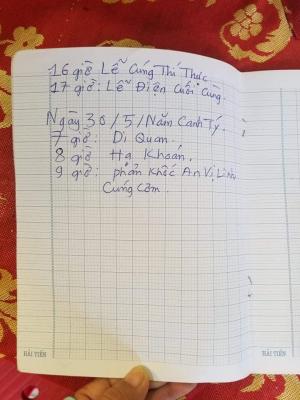 16 giờ Lễ Cúng Thí Thực.
17 giờ: Lễ Điện Cuối Cùng.
Ngày 30/5/Năm Canh Tý.
7 giờ: Di Quan.
8 giờ Hạ Khoán.
9 giờ: phản Khốc An Vị Linh
Cúng Cơm.
HẢI TIẾN
HẢI TIẾN